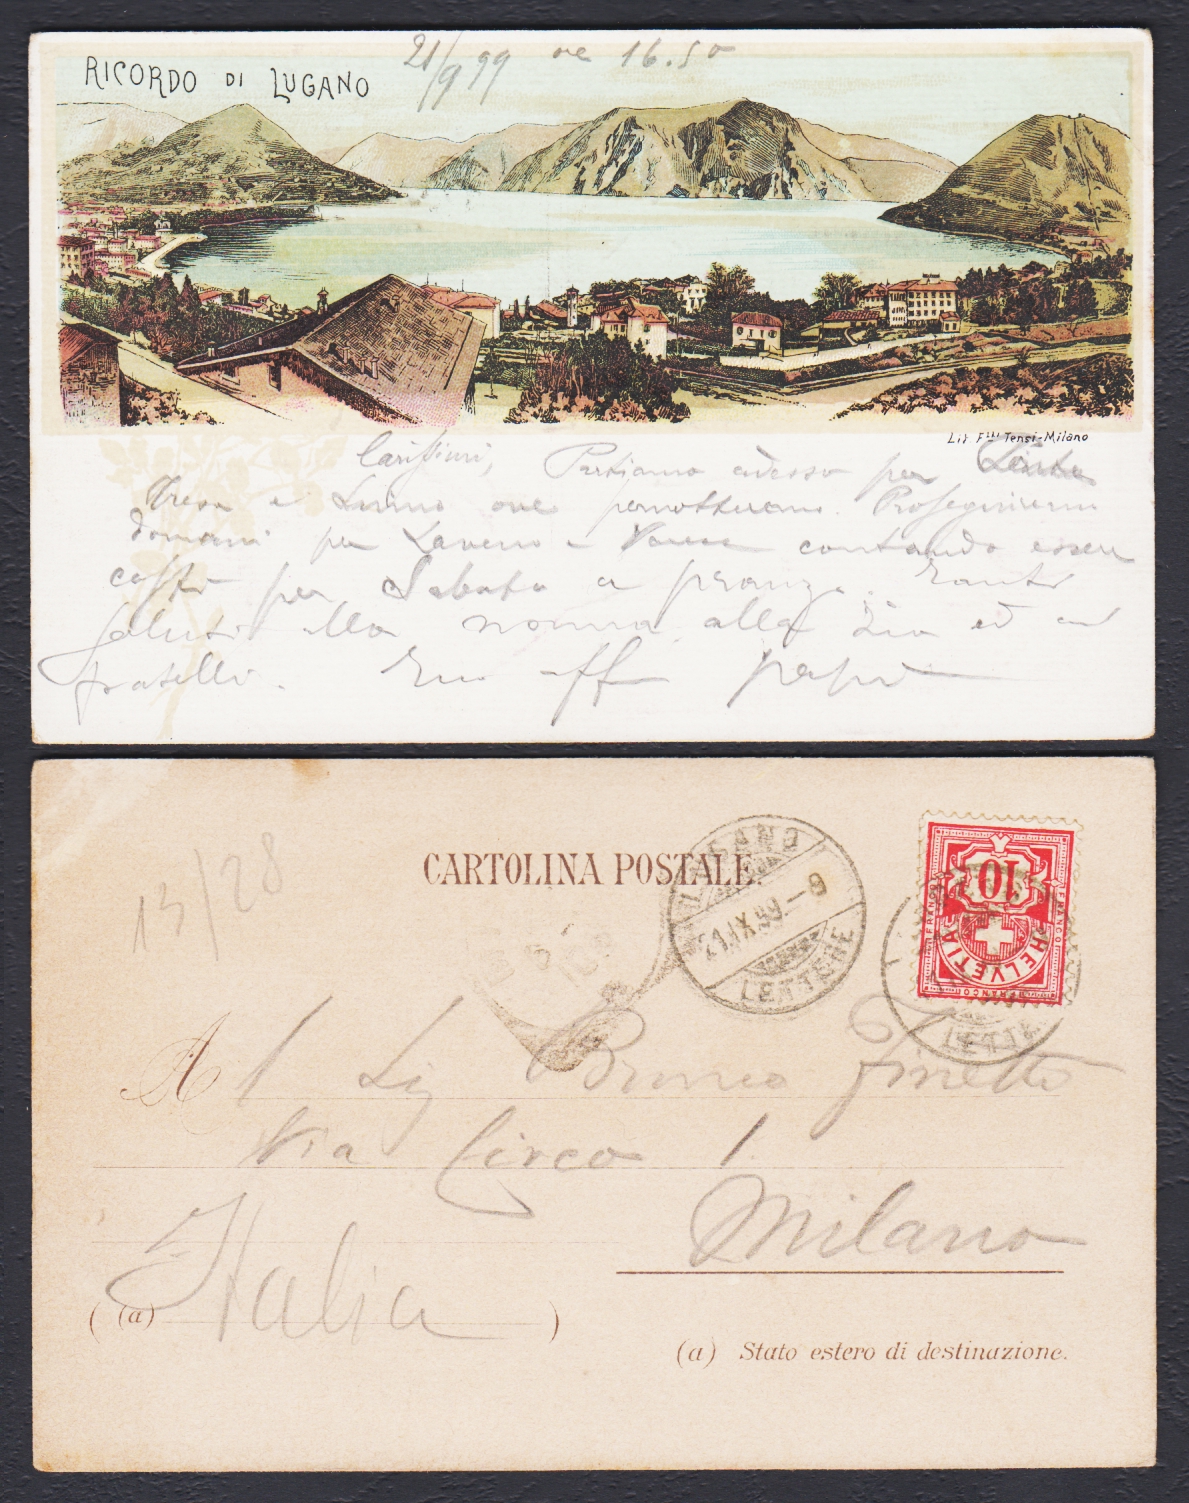 RICORDO DI LUGANO
21/9 99 ore 16.50
Lit. F.lli Tensi-Milano
Carissimi, Partiamo adesso per
Tresa e Luino ove pernotteremo. Proseguiremo
domani per Laveno e Varese contando essere
costì per Sabato a pranzo. Tanti
saluti alla nonna alla Zia ed ai
fratelli. Suo aff papà
13/28
CARTOLINA POSTALE.
LUGANO
21.IX.99.-9
LETTERE
10
FRANCO
FRANCO
HELVETIA
FRANCO
LETTE
Al Sig Bruno Finetti
Via Circo 1
Milano
Italia
( (a) )
(a) Stato estero di destinazione.